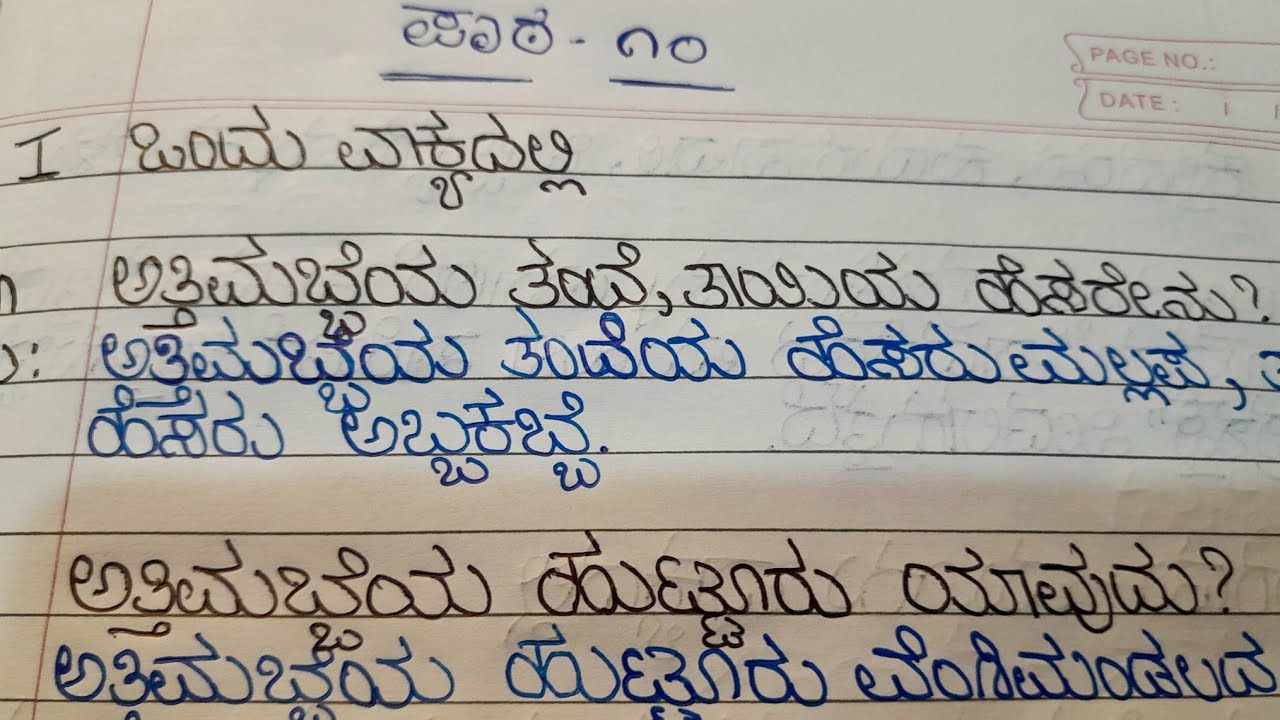 ಪಾಠ - ೧೦
PAGE NO.:
DATE: / /
I ಒಂದು ವಾಕ್ಯದಲ್ಲಿ
೧ ಅತ್ತಿಮಬ್ಬೆಯ ತಂದೆ, ತಾಯಿಯ ಹೆಸರೇನು?
ಅತ್ತಿಮಬ್ಬೆಯ ತಂದೆಯ ಹೆಸರು ಮಲ್ಲಪ,
ಹೆಸರು ಅಬ್ಬಕಬ್ಬೆ.
ಅತ್ತಿಮಬ್ಬೆಯ ಹುಟ್ಟೂರು ಯಾವುದು?
ಅತ್ತಿಮಬ್ಬೆಯ ಹುಟ್ಟೂರು ವೆಂಗಿಮಂಡಲದ